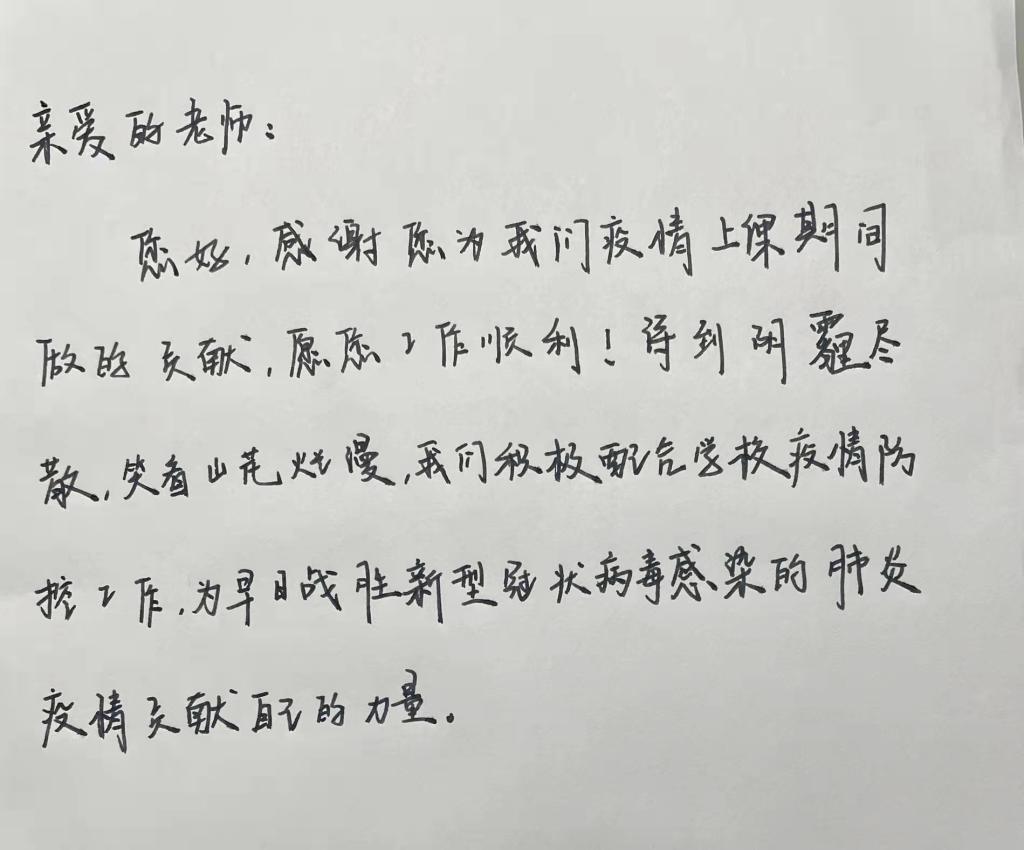 亲爱的老师：
您好，感谢您为我们疫情上课期间
做的贡献，愿您工作顺利！待到阴霾尽
散，笑看山花烂漫，我们积极配合学校疫情防
控工作，为早日战胜新型冠状病毒感染的肺炎
疫情贡献自己的力量。